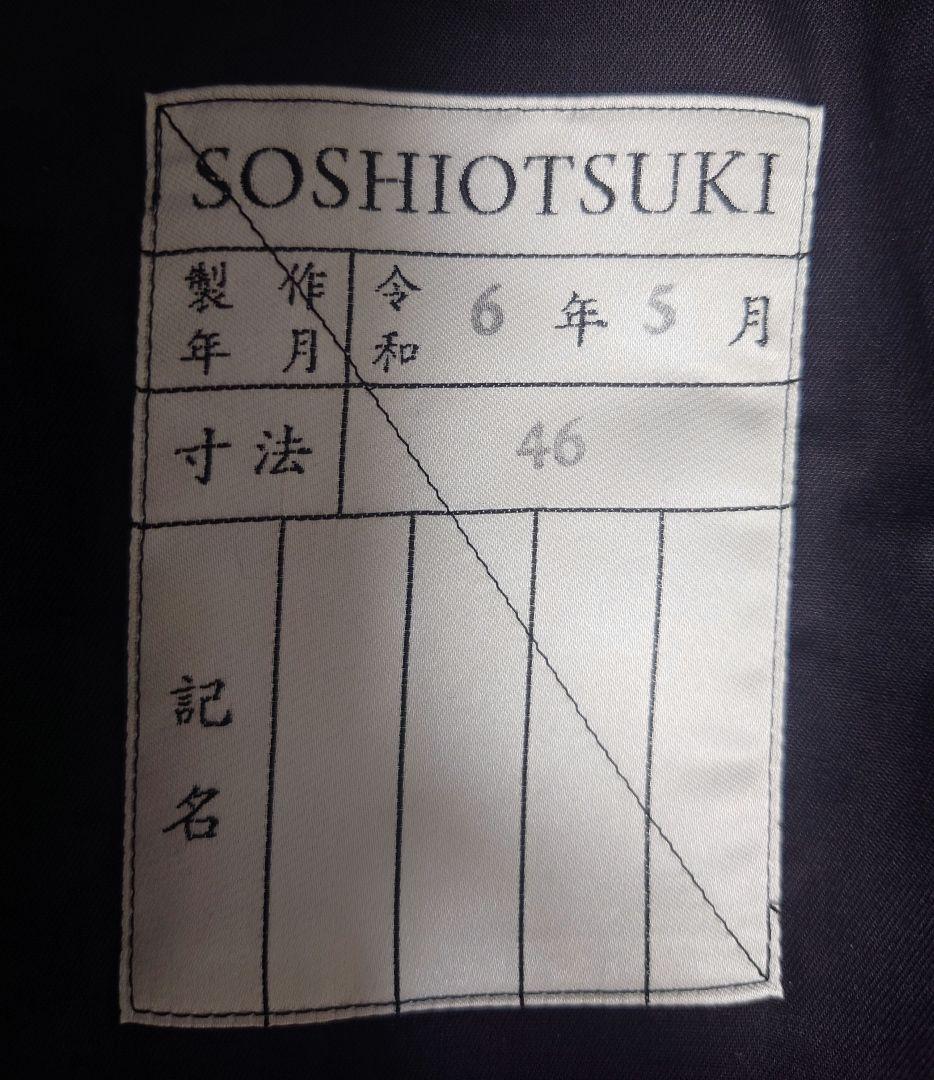 SOSHIOTSUKI
製作年月 令和 6 年 5 月
寸法 46
記名